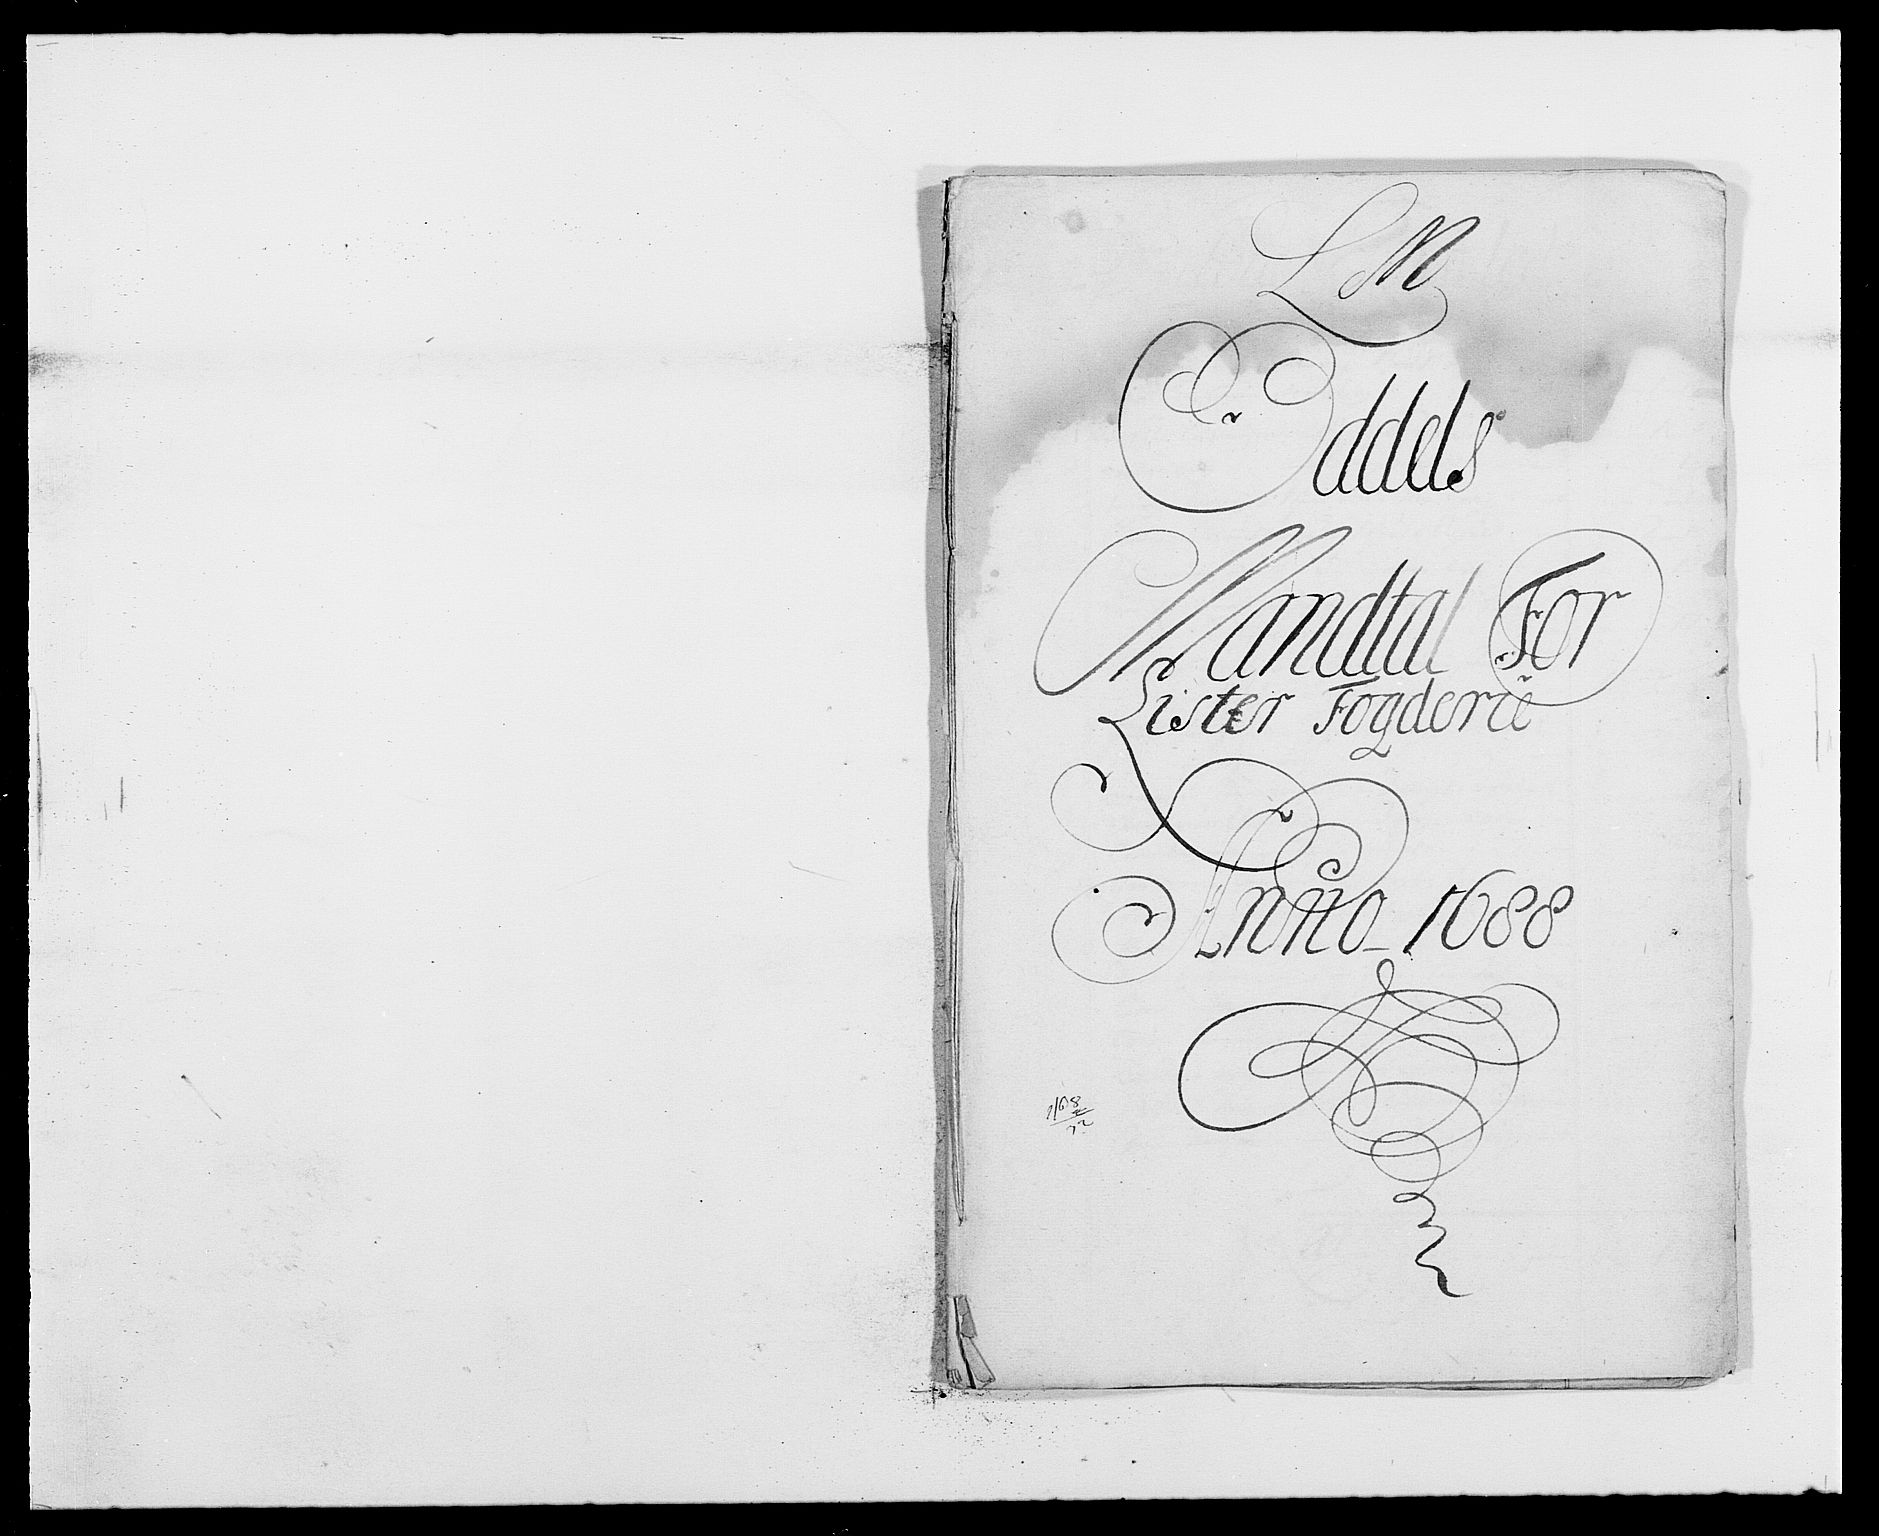 LM
Oddels
Mandtal For
Lister Fogderie
Anno 1688